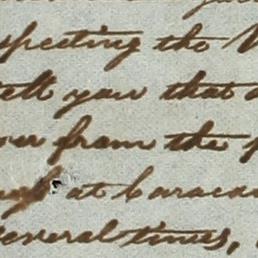 specting the
tell you that
from the
at Caracas
several times,